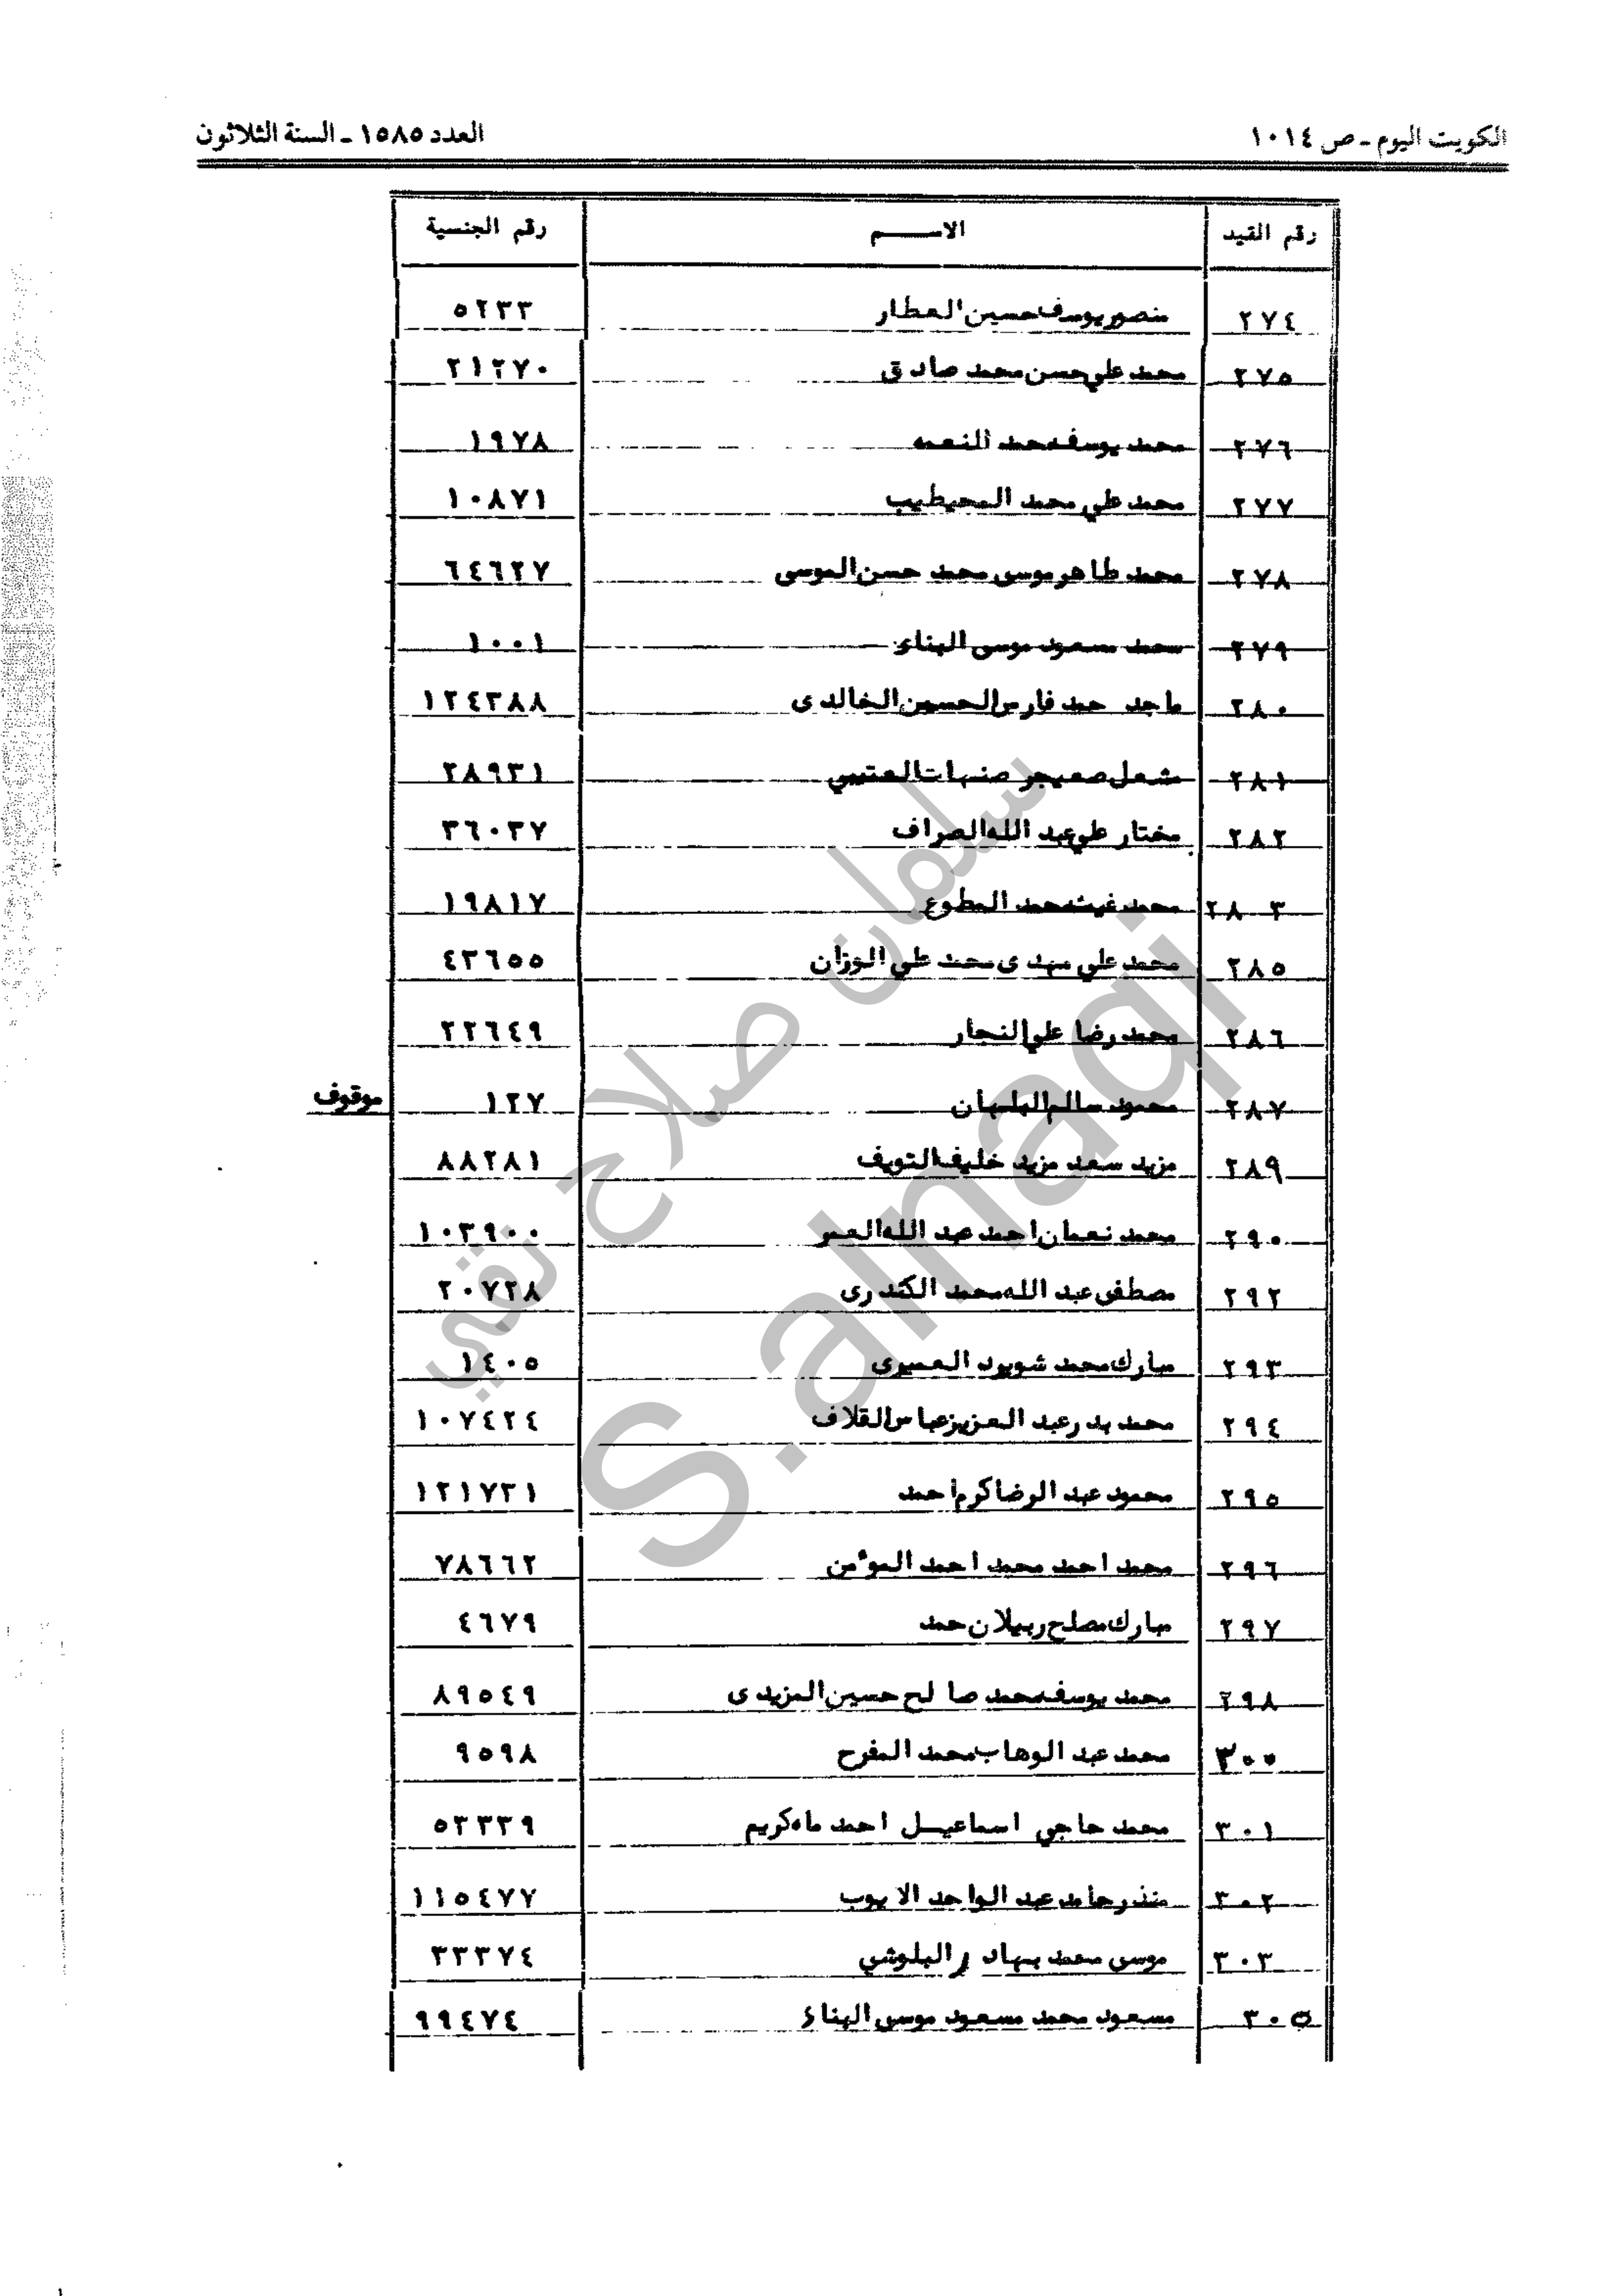 الكويت اليوم ـ ص ١٠١٤
العدد ١٥٨٥ ـ السنة الثلاثون
رقم القيد الاســـم رقم الجنسية
٢٧٤ منصور يوسف حسين العطار ٥٢٣٣
٢٧٥ محمد علي حسن محمد صادق ٢١٢٧٠
٢٧٦ محمد يوسف محمد النعمه ١٩٧٨
٢٧٧ محمد علي محمد المحيطيب ١٠٨٧١
٢٧٨ محمد طاهر موسى محمد حسن الموسى ٦٤٦٢٧
٢٧٩ محمد مسعود موسى البناء ١٠٠١
٢٨٠ ماجد حمد فارس الحسين الخالدى ١٢٤٣٨٨
٢٨١ مشعل صعيجر صنهات العتيبي ٢٨٩٣١
٢٨٢ مختار علي عبد الله الصراف ٣٦٠٣٧
٢٨٣ محمد غيث محمد المطوع ١٩٨١٧
٢٨٥ محمد علي مهدى محمد علي الوزان ٤٣٦٥٥
٢٨٦ محمد رضا علي النجار ٢٢٦٤٩
٢٨٧ محمود سالم البلهان ١٢٧ موقوف
٢٨٩ مزيد سعد مزيد خليف التويف ٨٨٢٨١
٢٩٠ محمد نعمان احمد عبد الله العمر ١٠٣٩٠٠
٢٩٢ مصطفى عبد الله محمد الكندرى ٢٠٧٢٨
٢٩٣ مبارك محمد شويرد العميرى ١٤٠٥
٢٩٤ محمد بدر عبد العزيز عباس القلاف ١٠٧٤٢٤
٢٩٥ محمود عبد الرضا كرم احمد ١٢١٧٣١
٢٩٦ محمد احمد محمد احمد المؤمن ٧٨٦٦٢
٢٩٧ مبارك مصلح ربيلان حمد ٤٦٧٩
٢٩٨ محمد يوسف محمد صالح حسين المزيدى ٨٩٥٤٩
٣٠٠ محمد عبد الوهاب محمد المفرح ٩٥٩٨
٣٠١ محمد حاجي اسماعيل احمد ماه كريم ٥٣٣٣٩
٣٠٢ منذر حامد عبد الواحد الايوب ١١٥٤٧٧
٣٠٣ موسى محمد بهادر البلوشي ٣٣٣٧٤
٣٠٥ مسعود محمد مسعود موسى البناء ٩٩٤٧٤
سلمان صلاح تقي
S.alnaqi